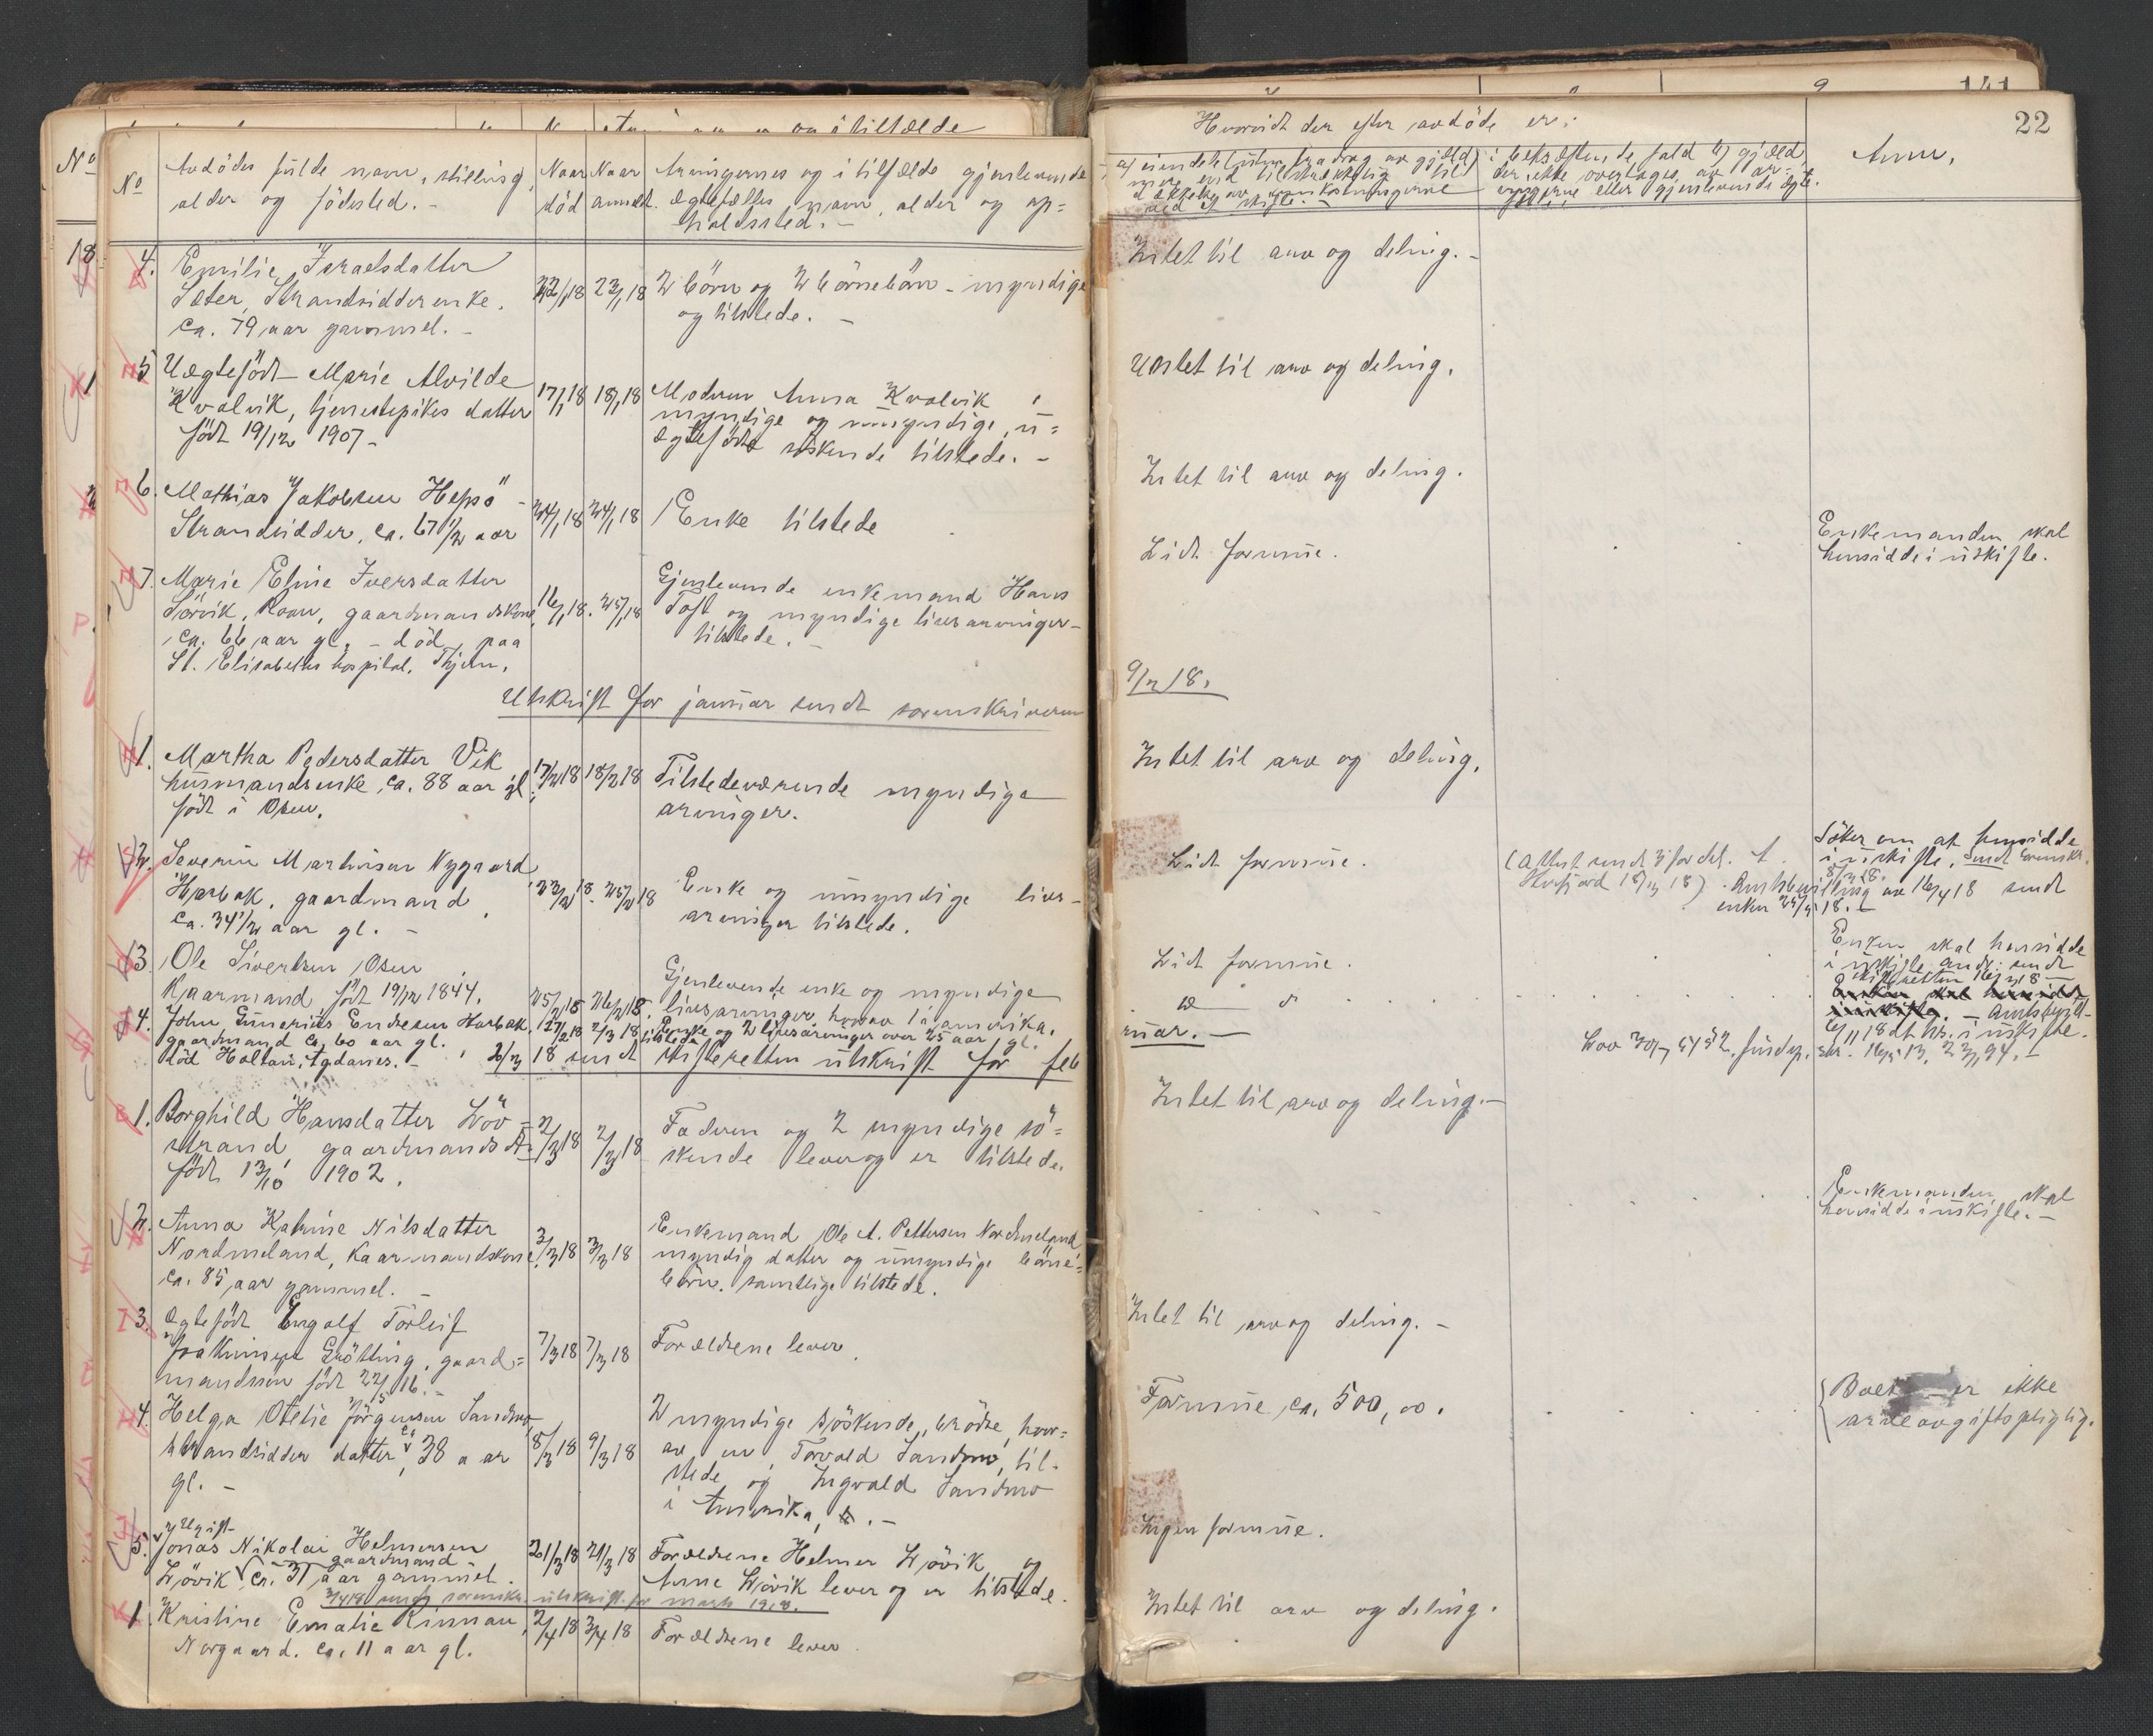 No
Avdødes fulde navn, stilling,
alder og fødested. -
Naar
død
Naar
anmeldt.
Arvingernes og i tilfælde gjenlevende
ægtefælles navn, alder og op=
holdssted. -
4. Emilie Israelsdatter
Sæter, Strandsidderenke.
ca. 79 aar gammel. -
22/1 18
23/1 18
2 börn og 2 börnebörn - myndige
og tilstede. -
5. Uegtefödt Marie Alvilde
Kvalvik, tjenestepikes datter
födt 19/12 1907 -
17/1 18
18/1 18
Moderen Anna Kvalvik,
myndige og umyndige, u=
ægtefödte söskende tilstede. -
6. Mathias Jakobsen Hepsö -
Strandsidder, ca. 67 1/2 aar
24/1 18
24/1 18
Enke tilstede
7. Marie Eline Iversdatter
Sörvik, Roan, gaardmandskone,
ca. 66 aar gl. - död paa
St. Elisabeths hospital, Thjem.
16/1 18.
25/1 18
Gjenlevende enkemand Hans
Toft og myndige livsarvinger
tilstede. -
Utskrift for januar sendt sorenskriveren
1. Martha Pedersdatter Vik
husmandsenke, ca. 88 aar gl.
födt i Osen.
17/2 18
18/2 18
Tilstedeværende myndige
arvinger.
2. Severin Martinsen Nygaard
Harbak, gaardmand
ca. 34 1/2 aar gl. -
23/2 18.
25/2 18
Enke og umyndige livs-
arvinger tilstede.
3. Ole Sivertsen Osen
Kaarmand födt 19/12 1844.
25/2 18
26/2 18.
Gjenlevende enke og myndige
livsarvinger, hvorav 1 i amerika.
4. John Gunerius Endresen Harbak,
gaardmand ca. 60 aar gl.
död Holtan, Agdanes. -
17/2 18
2/3 18
Enke og 2 livsarvinger over 25 aar gl.
tilstede
2/3 18 sendt skifteretten utskrift for feb
1. Borghild Hansdatter Löv =
strand gaardmandsdtr
födt 13/10 1902.
2/3 18
2/3 18
Faderen og 2 myndige sö=
skende lever og er tilstede.
2. Anna Katrine Nilsdatter
Nordmeland, Kaarmandskone.
ca. 85 aar gammel. -
3/3 18
3/3 18
Enkemand Ole A. Pettersen Nordmeland
myndig datter og umyndige börne=
börn. samtlige tilstede.
3. Ægtefödt Ingolf Torleif
Joakimsen Grötting, gaard=
mandssön födt 22/5 16. -
7/3 18
7/3 18
Forældrene lever.
4. Helga Otelie Jörgensen Sandmo
strandsidder datter, ca 38 aar
gl. -
8/3 18
9/3 18
2 myndige söskende, brödre, hvor=
av en, Torvald Sandmo, til-
stede og Ingvald Sandmo
i Amerika. -
Ugift
5. Jonas Nikolai Helmersen
gaardmand
Lövik ca. 31 aar gammel.
21/3 18
21/3 18
Forældrene Helmer Lövik og
Anne Lövik lever og er tilstede.
3/4 18 sendt sorenskr. utskrift for marts 1918.
1. Kristine Emalie Rinnan,
Norgaard. ca. 11 aar gl.
2/4 18
3/4 18
Forældrene lever
22
Hvorvidt der efter avdöde er:
a) eiendele utover fradrag av gjæld
mer end tilstrækkelig til
dækkelse av omkostningerne
ved et skifte. -
i bekræftende fald b) gjæld,
der ikke overtages av ar-
vingerne eller gjenlevende ægte-
Anm.
Intet til arv og deling. -
Intet til arv og deling.
Intet til arv og deling.
Lidt formue.
Enkemanden skal
hensidde i uskifte.
9/2 18.
Intet til arv og deling.
Lidt formue.
(Attest sendt
18/3 18)
Söker om at hensidde
i uskifte. Sendt sorenskr.
8/3 18.
Amtsbevilling av 16/4 18 sendt
enken 25/4 18. -
Lidt formue.
Enken skal hensidde
i uskifte
skifteretten
ruar. -
Lov 30/7 1851
Intet til arv og deling. -
Enkemanden skal
hensidde i uskifte. -
Intet til arv og deling. -
Formue ca. 500,00.
Boet er ikke
arveavgiftspligtig.
Ingen formue.
Intet til arv og deling.